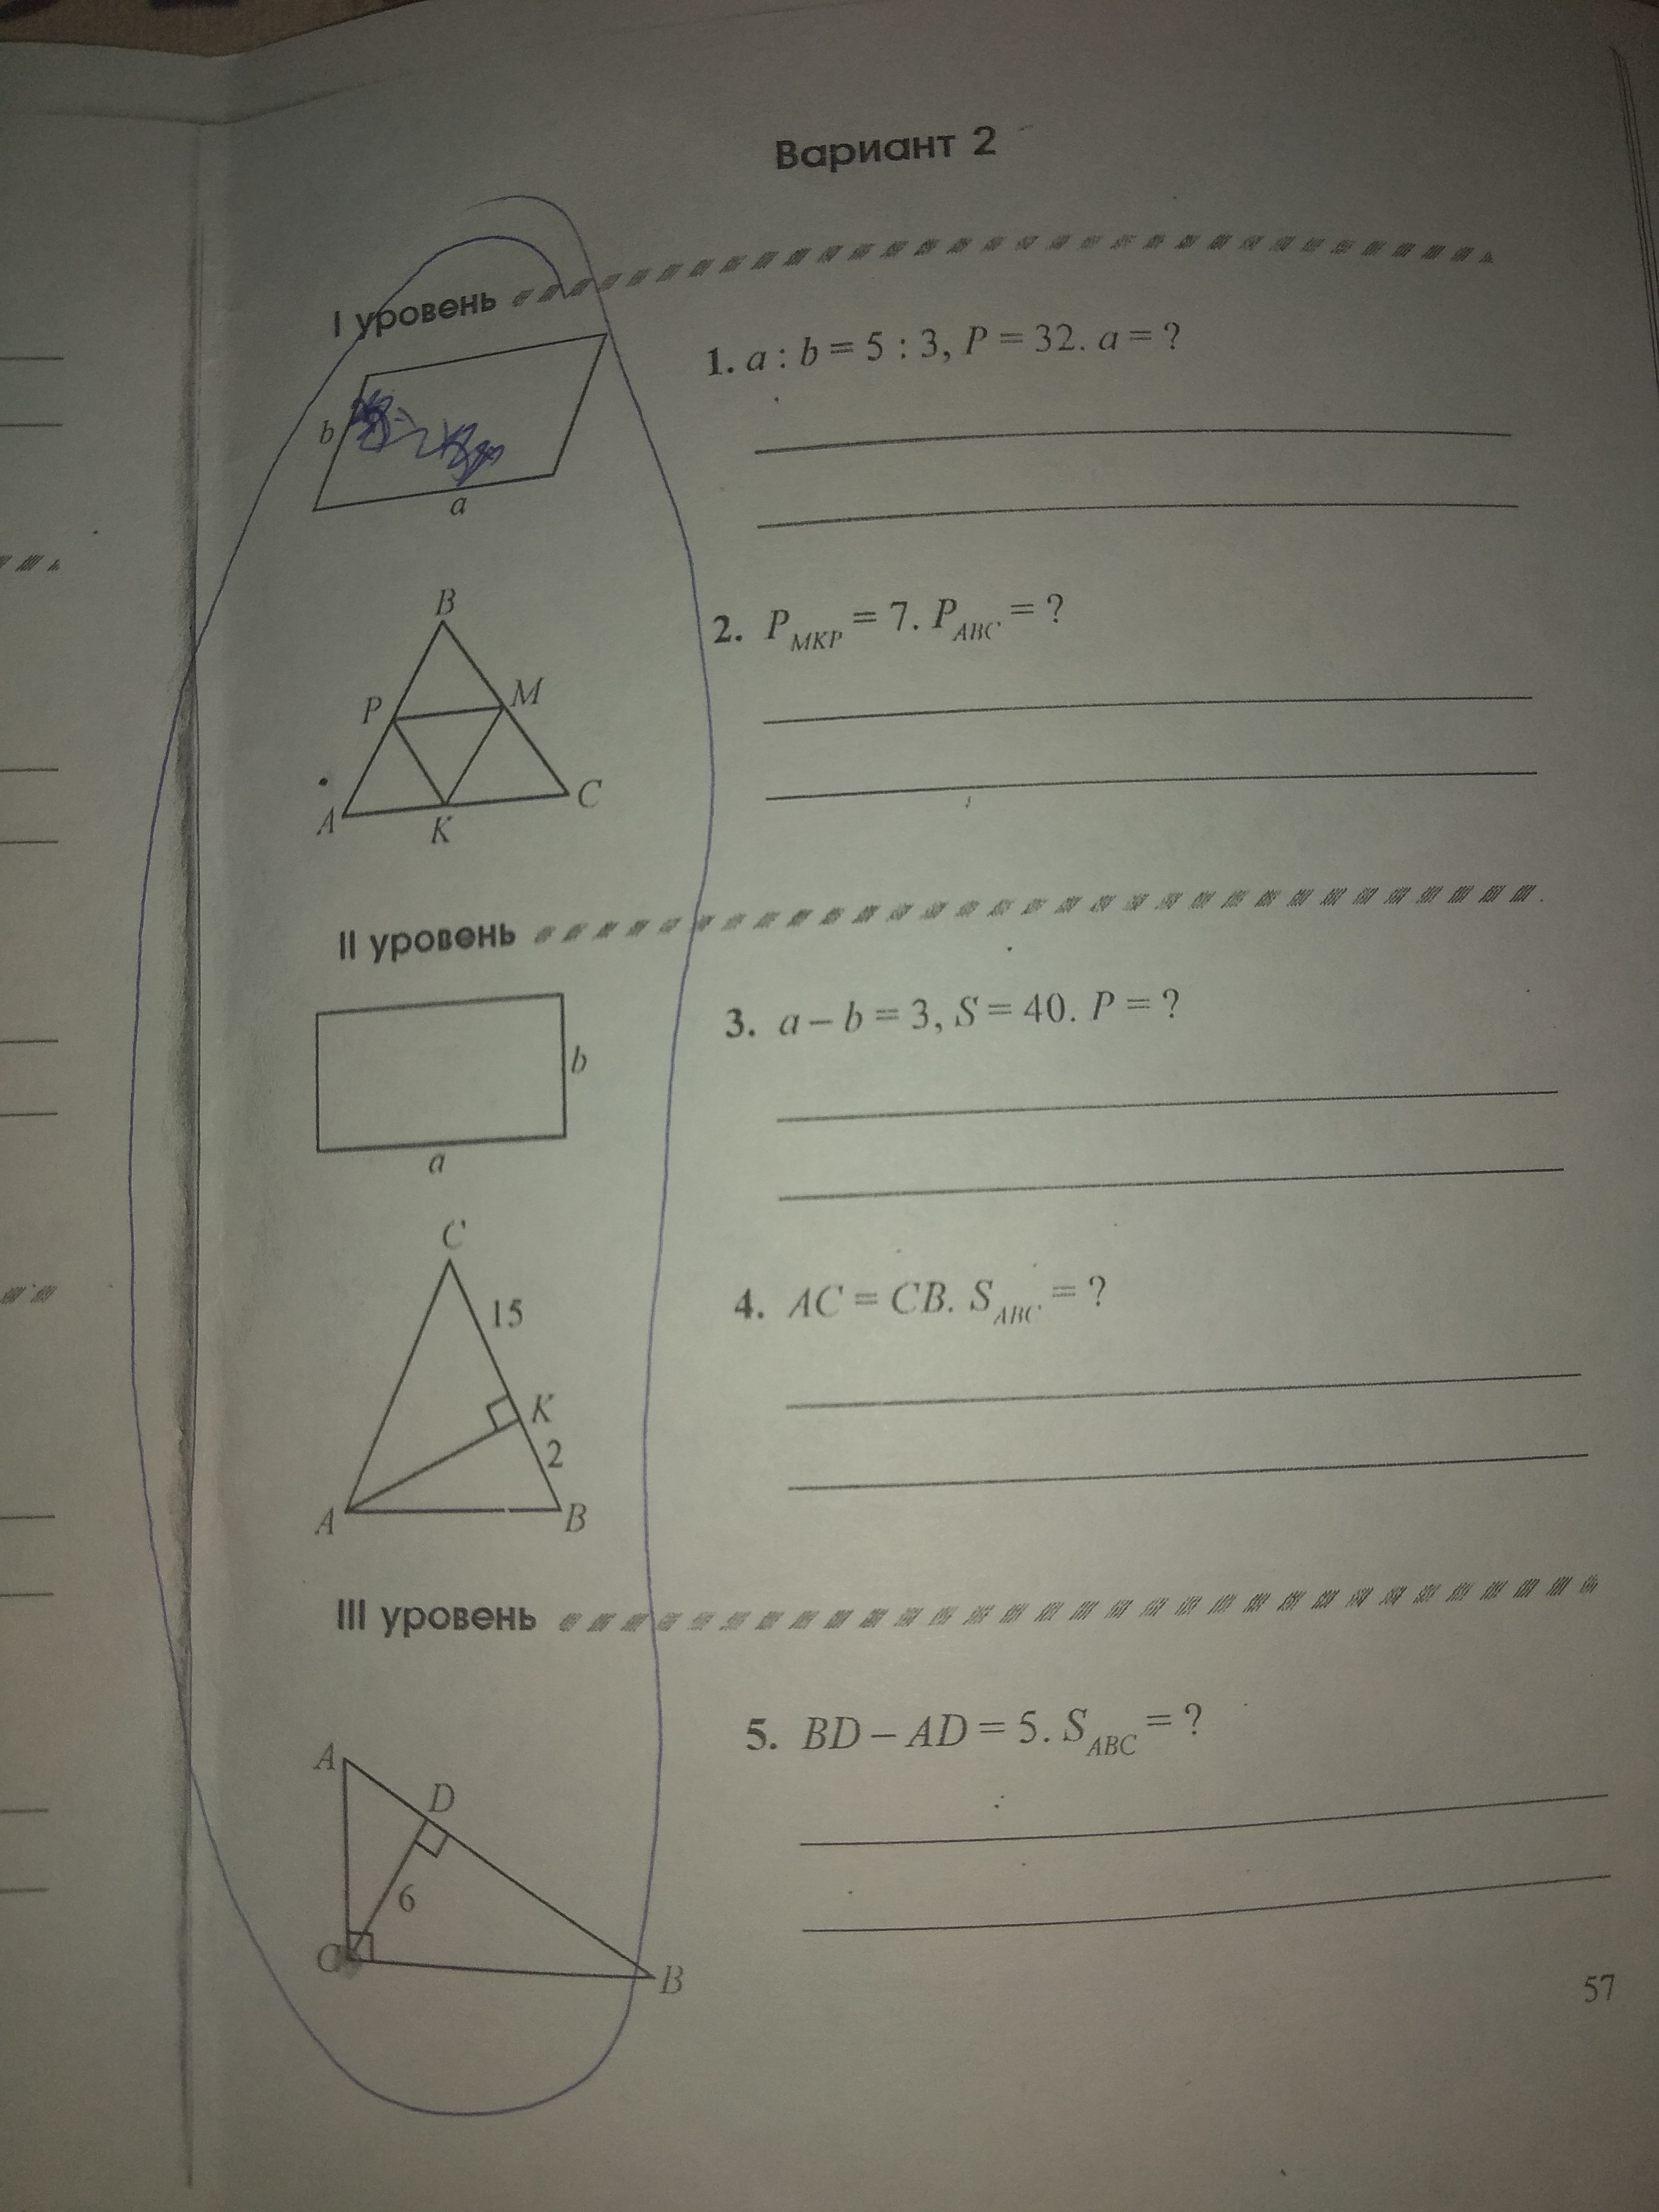 Вариант 2
I уровень
b
a
1. a : b = 5 : 3, P = 32. a = ?
B
P
M
A
K
C
2. P_MKP = 7. P_ABC = ?
II уровень
b
a
3. a – b = 3, S = 40. P = ?
C
15
K
2
A
B
4. AC = CB. S_ABC = ?
III уровень
A
D
6
C
B
5. BD – AD = 5. S_ABC = ?
57